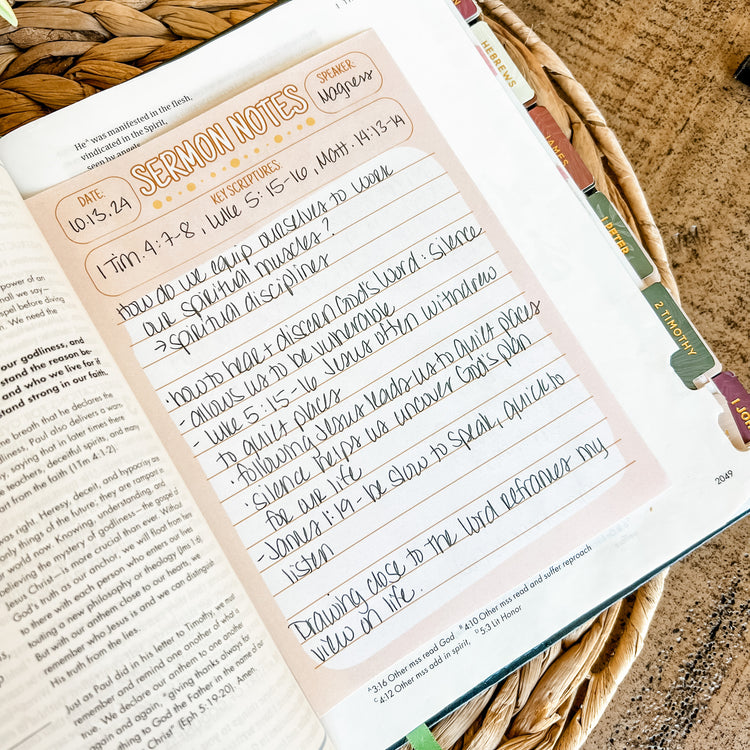 He^A was manifested in the flesh,
vindicated in the Spirit,
seen by angels,
DATE:
10.13.24
SERMON NOTES
SPEAKER:
Magness
KEY SCRIPTURES:
1 Tim. 4:7-8, Luke 5:15-16, Matt. 14:13-14
How do we equip ourselves to work
our spiritual muscles?
→ spiritual disciplines
• how to hear + discern God's Word: silence
- allows us to be vulnerable
- Luke 5:15-16 Jesus often withdrew
to quiet places
• following Jesus leads us to quiet places
• silence helps us uncover God's plan
for our life
- James 1:19 - be slow to speak, quick to
listen
Drawing close to the Lord reframes my
view on life.
A 3:16 Other mss read God B 4:10 Other mss read and suffer reproach
C 4:12 Other mss add in spirit, D 5:3 Lit Honor
2049
HEBREWS
JAMES
1 PETER
2 TIMOTHY
1 JOH
power of an
hall we say—
spel before diving
. We need the
our godliness, and
stand the reason be-
and who we live for if
stand strong in our faith.
one breath that he declares the
dliness, Paul also delivers a warn-
, saying that in later times there
e teachers, deceitful spirits, and many
art from the faith (1 Tm 4:1-2).
was right. Heresy, deceit, and hypocrisy are
only things of the future, they are rampant in
r world now. Knowing, understanding, and
believing the mystery of godliness—the gospel of
Jesus Christ—is more crucial than ever. Without
God's truth as our anchor, we will float from here
to there with each person who enters our lives
touting a new philosophy or theology (Jms 1:6).
But with our anthem close to our hearts, we
remember who Jesus is and we can distinguish
His truth from the lies.
Just as Paul did in his letter to Timothy, we must
remember and remind one another of what is
true. We declare our anthem to one another
again and again, "giving thanks always for
everything to God the Father in the name of our
Christ" (Eph 5:19-20). Amen.